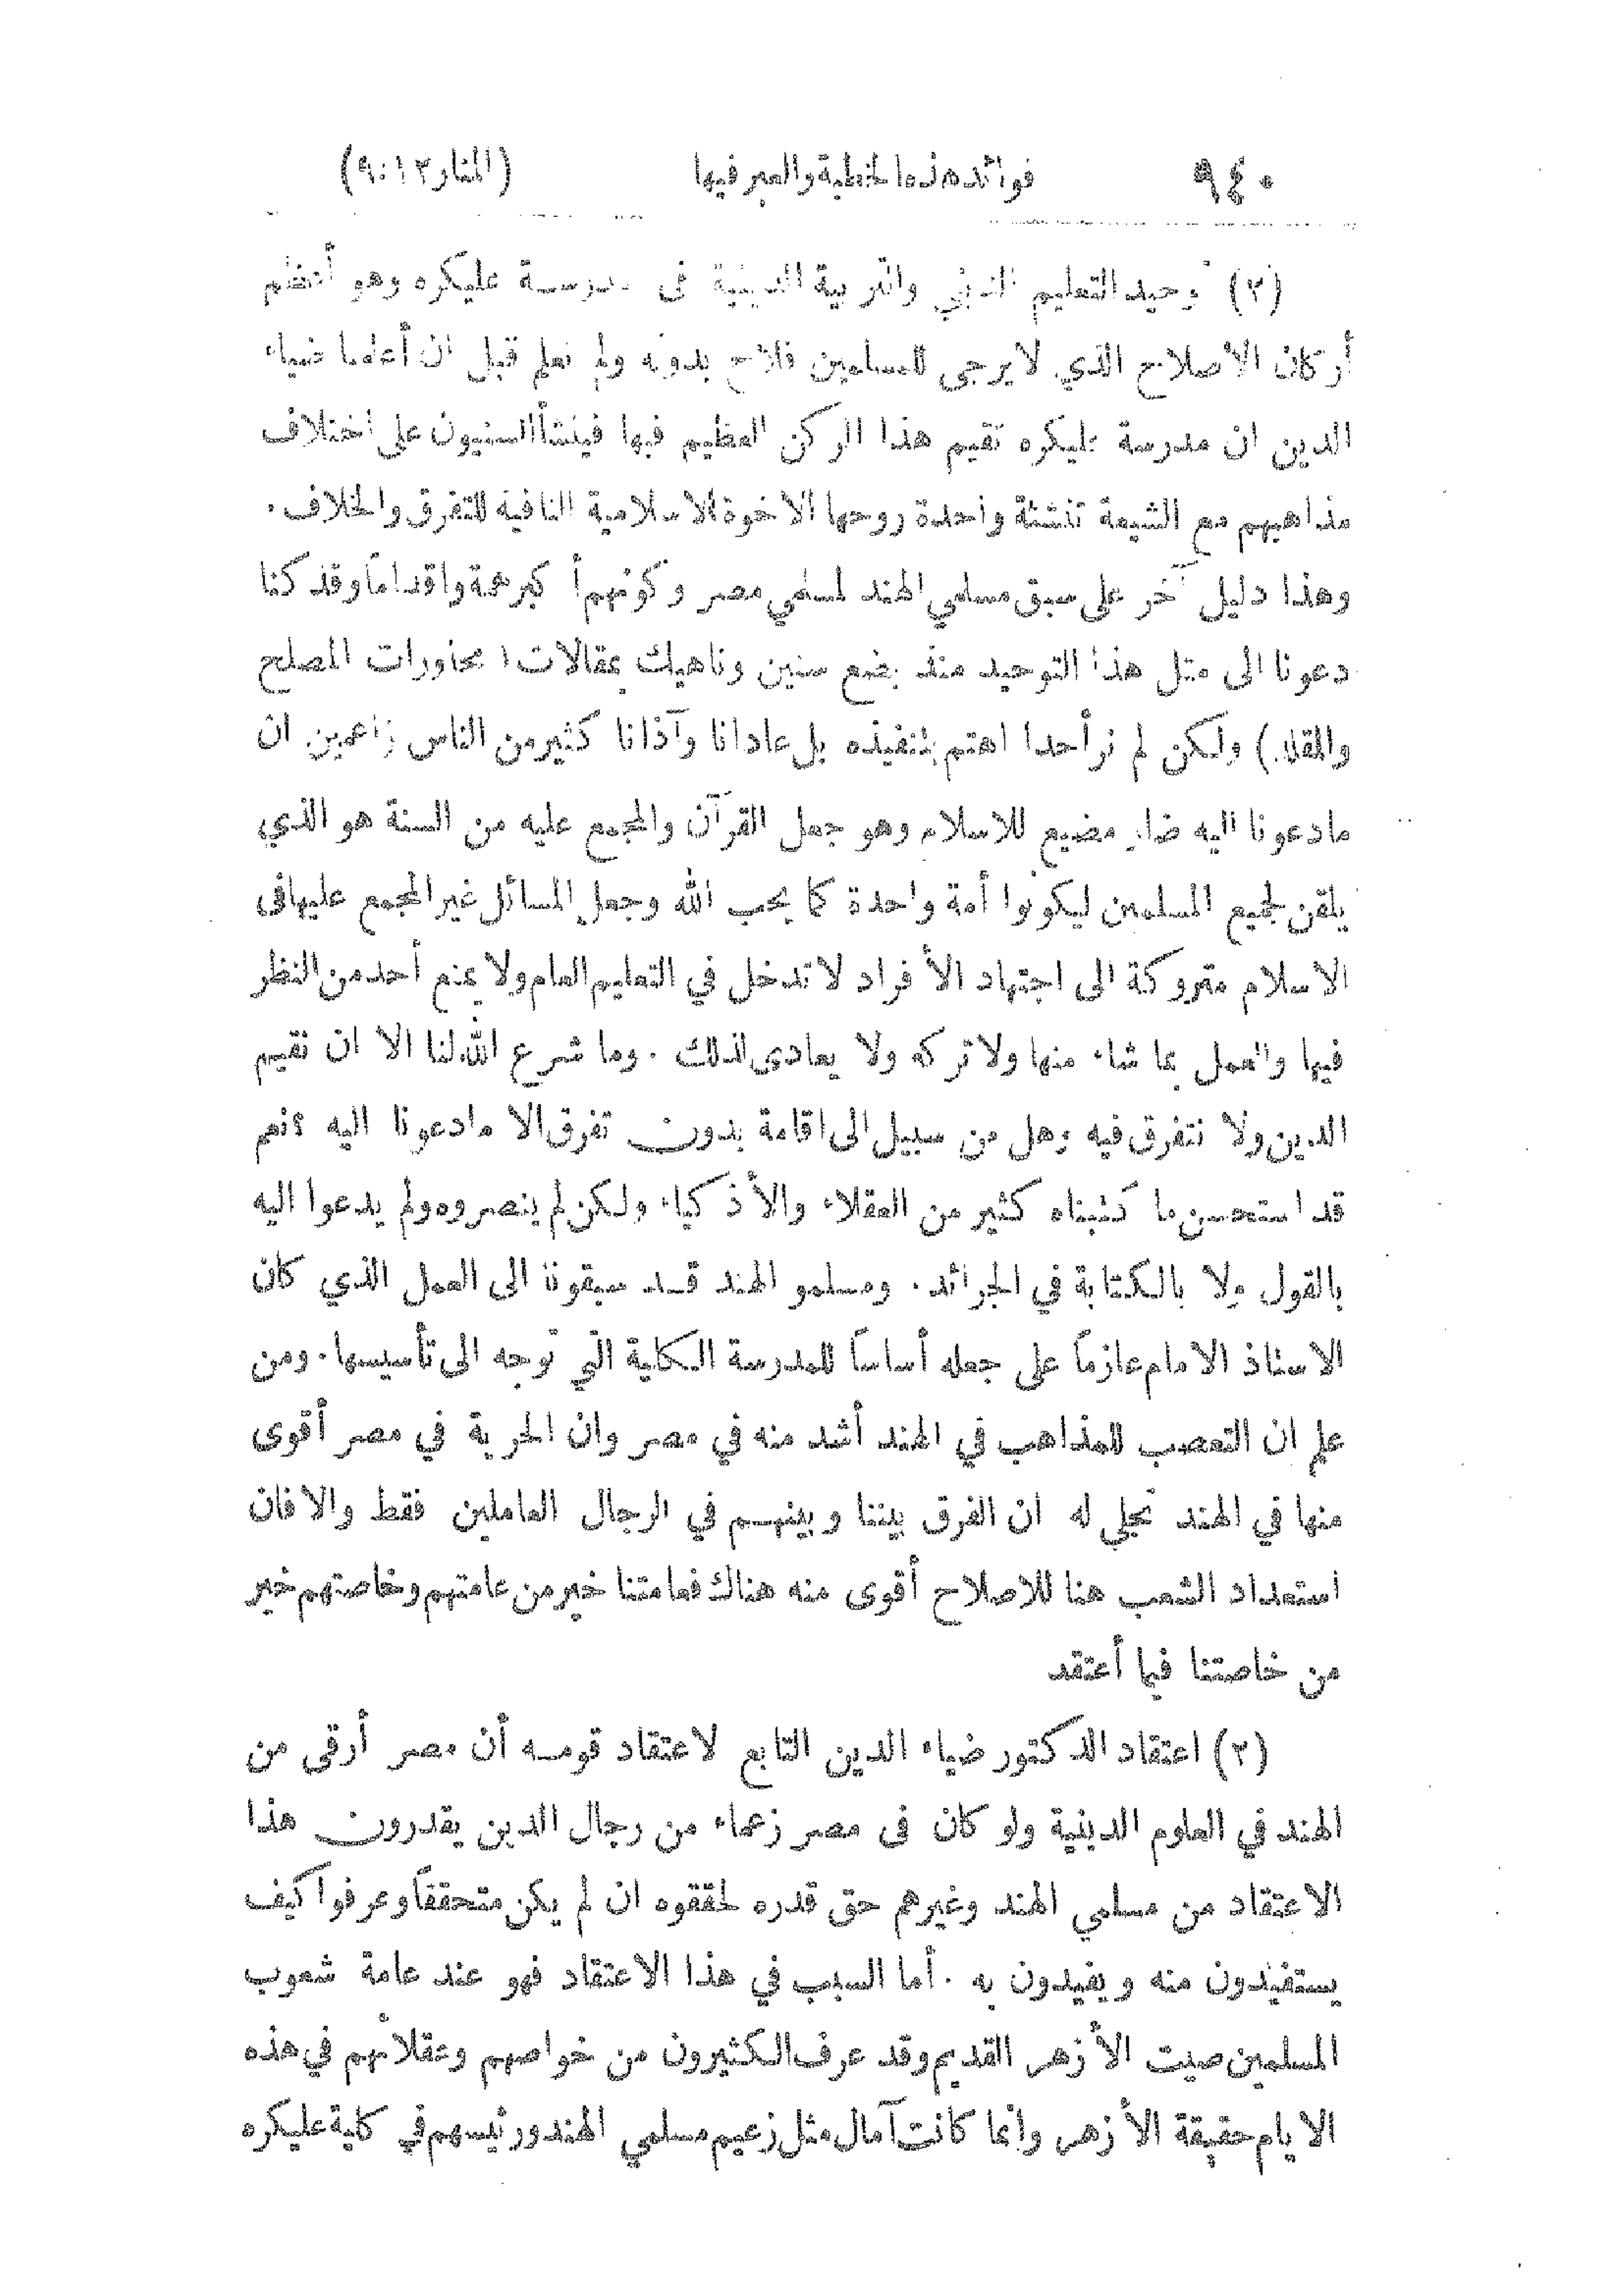 ٩٤٠ فوائد هذه الخطبة والعبر فيها (المنار ١٢:٩)
(٢) توحيد التعليم الديني والتربية الدينية في مدرسة عليكره وهو أعظم
أركان الاصلاح الذي لا يرجى للمسلمين فلاح بدونه ولم نعلم قبل ان أعلمنا ضياء
الدين ان مدرسة عليكره تقيم هذا الركن العظيم فيها فينشأ السنيون على اختلاف
مذاهبهم مع الشيعة تنشئة واحدة روحها الاخوة الاسلامية النافية للتفرق والخلاف.
وهذا دليل آخر على سبق مسلمي الهند لمسلمي مصر وكونهم أكبر همة واقداما وقد كنا
دعونا الى مثل هذا التوحيد منذ بضع سنين وناهيك بمقالات (محاورات المصلح
والمقلد) ولكن لم نر أحدا اهتم بتنفيذه بل عادانا وآذانا كثير من الناس زاعمين ان
مادعونا اليه ضار مضيع للاسلام وهو جعل القرآن والمجمع عليه من السنة هو الذي
يلقن لجميع المسلمين ليكونوا أمة واحدة كما يحب الله وجعل المسائل غير المجمع عليها في
الاسلام متروكة الى اجتهاد الأفراد لا تدخل في التعليم العام ولا يمنع أحد من النظر
فيها والعمل بما شاء منها ولا تركه ولا يعادى لذلك . وما شرع الله لنا الا ان نقيم
الدين ولا نتفرق فيه وهل من سبيل الى اقامة بدون تفرق الا مادعونا اليه ؟ نعم
قد استحسن ما كتبناه كثير من العقلاء والأذكياء ولكن لم ينصروه ولم يدعوا اليه
بالقول ولا بالكتابة في الجرائد . ومسلمو الهند قد سبقونا الى العمل الذي كان
الاستاذ الامام عازماً على جعله أساساً للمدرسة الكلية التي توجه الى تأسيسها . ومن
علم ان التعصب للمذاهب في الهند أشد منه في مصر وان الحرية في مصر أقوى
منها في الهند تجلى له ان الفرق بيننا وبينهم في الرجال العاملين فقط والا فان
استعداد الشعب هنا للاصلاح أقوى منه هناك فعامتنا خير من عامتهم وخاصتهم خير
من خاصتنا فيما أعتقد
(٢) اعتقاد الدكتور ضياء الدين التابع لاعتقاد قومه أن مصر أرقى من
الهند في العلوم الدينية ولو كان في مصر زعماء من رجال الدين يقدرون هذا
الاعتقاد من مسلمي الهند وغيرهم حق قدره لحققوه ان لم يكن متحققاً وعرفوا كيف
يستفيدون منه ويفيدون به . أما السبب في هذا الاعتقاد فهو عند عامة شعوب
المسلمين صيت الأزهر القديم وقد عرف الكثيرون من خواصهم وعقلائهم في هذه
الايام حقيقة الأزهر وانما كانت آمال مثل زعيم مسلمي الهند ورئيسهم في كلية عليكره